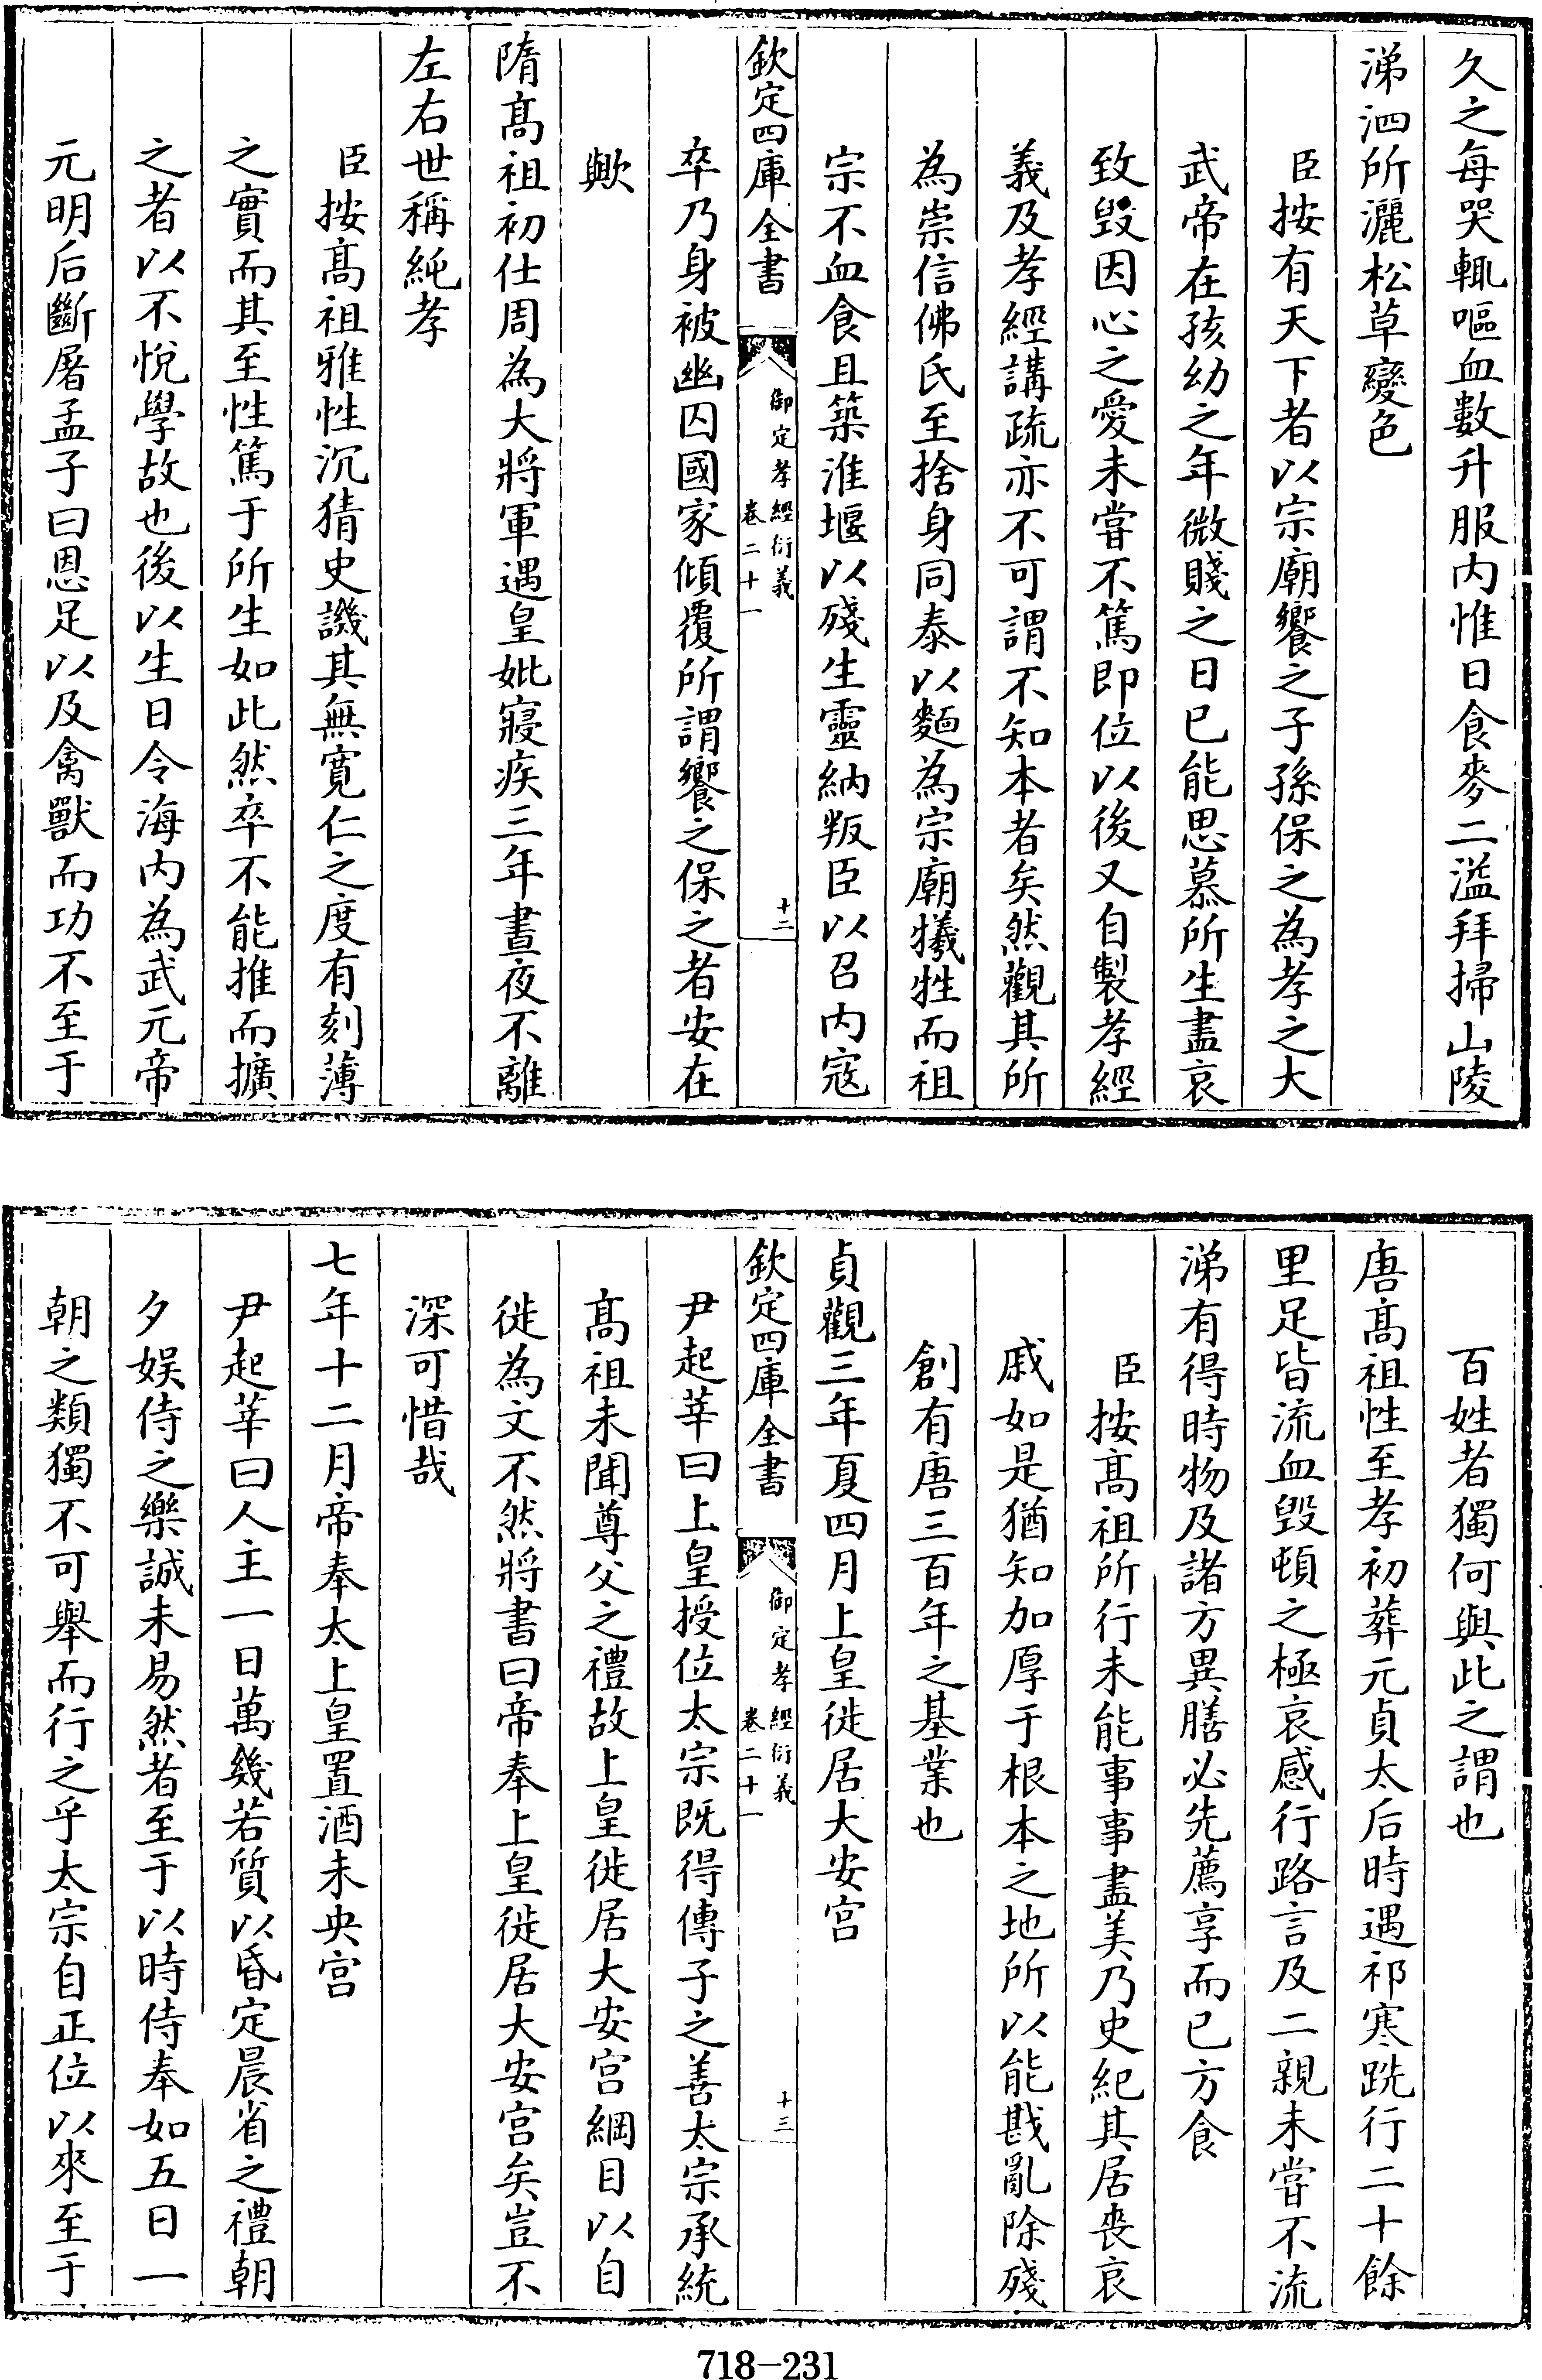 久之每哭輒嘔血數升服内惟日食麥二溢拜掃山陵
涕泗所灑松草變色
臣按有天下者以宗廟饗之子孫保之為孝之大
武帝在孩幼之年微賤之日已能思慕所生盡哀
致毁因心之愛未嘗不篤即位以後又自製孝經
義及孝經講疏亦不可謂不知本者矣然觀其所
為崇信佛氏至捨身同泰以麵為宗廟犧牲而祖
宗不血食且築淮堰以殘生靈納叛臣以召内寇
欽定四庫全書
御定孝經衍義
卷二十一
十二
卒乃身被幽囚國家傾覆所謂饗之保之者安在
歟
隋髙祖初仕周為大將軍遇皇妣寢疾三年晝夜不離
左右世稱純孝
臣按髙祖雅性沉猜史譏其無寛仁之度有刻薄
之實而其至性篤于所生如此然卒不能推而擴
之者以不悅學故也後以生日令海内為武元帝
元明后斷屠孟子曰恩足以及禽獸而功不至于
百姓者獨何與此之謂也
唐髙祖性至孝初葬元貞太后時遇祁寒跣行二十餘
里足皆流血毁頓之極哀感行路言及二親未嘗不流
涕有得時物及諸方異膳必先薦享而已方食
臣按髙祖所行未能事事盡美乃史紀其居喪哀
戚如是猶知加厚于根本之地所以能戡亂除殘
創有唐三百年之基業也
貞觀三年夏四月上皇徙居大安宫
欽定四庫全書
御定孝經衍義
卷二十一
十三
尹起莘曰上皇授位太宗既得傳子之善太宗承統
髙祖未聞尊父之禮故上皇徙居大安宫綱目以自
徙為文不然將書曰帝奉上皇徙居大安宫矣豈不
深可惜哉
七年十二月帝奉太上皇置酒未央宫
尹起莘曰人主一日萬幾若質以昏定晨省之禮朝
夕娱侍之樂誠未易然者至于以時侍奉如五日一
朝之類獨不可舉而行之乎太宗自正位以來至于
718-231